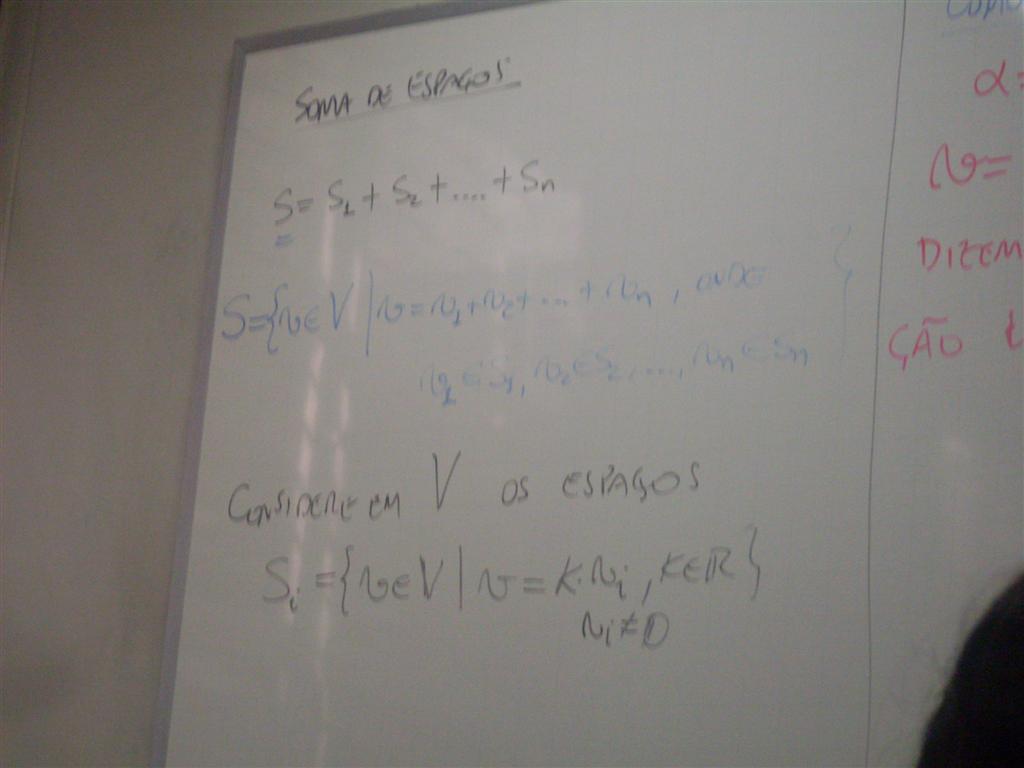 SOMA DE ESPAÇOS
S = S₁ + S₂ + .... + Sn
S={v∈V | v=v₁+v₂+...+vn, ONDE
v₁∈S₁, v₂∈S₂, ..., vn∈Sn }
CONSIDERE EM V OS ESPAÇOS
Si={v∈V | v=k.vi, k∈R}
vi≠0
COMO
α=
v=
DIZEM
ÇÃO